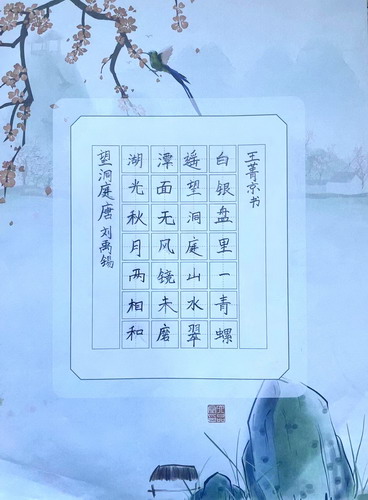 望洞庭 唐 刘禹锡
湖光秋月两相和
潭面无风镜未磨
遥望洞庭山水翠
白银盘里一青螺
王菁京书